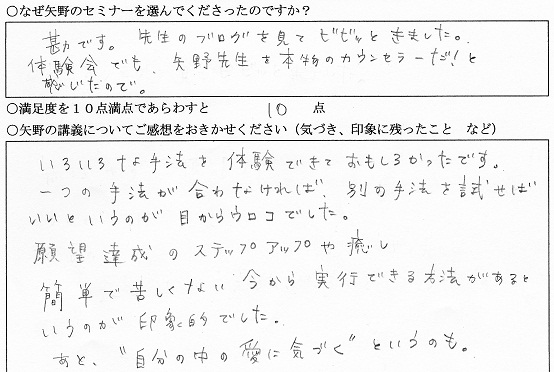 ○なぜ矢野のセミナーを選んでくださったのですか？
勘です。先生のブログを見てビビッときました。
体験会でも、矢野先生を本物のカウンセラーだ！と
感じたので。
○満足度を１０点満点であらわすと 10 点
○矢野の講義についてご感想をおきかせください（気づき、印象に残ったこと など）
いろいろな手法を体験できておもしろかったです。
一つの手法が合わなければ、別の手法を試せば
いいというのが目からウロコでした。
願望達成のステップアップや癒し
簡単で苦しくない今から実行できる方法があると
いうのが印象的でした。
あと、"自分の中の愛に気づく"というのも。